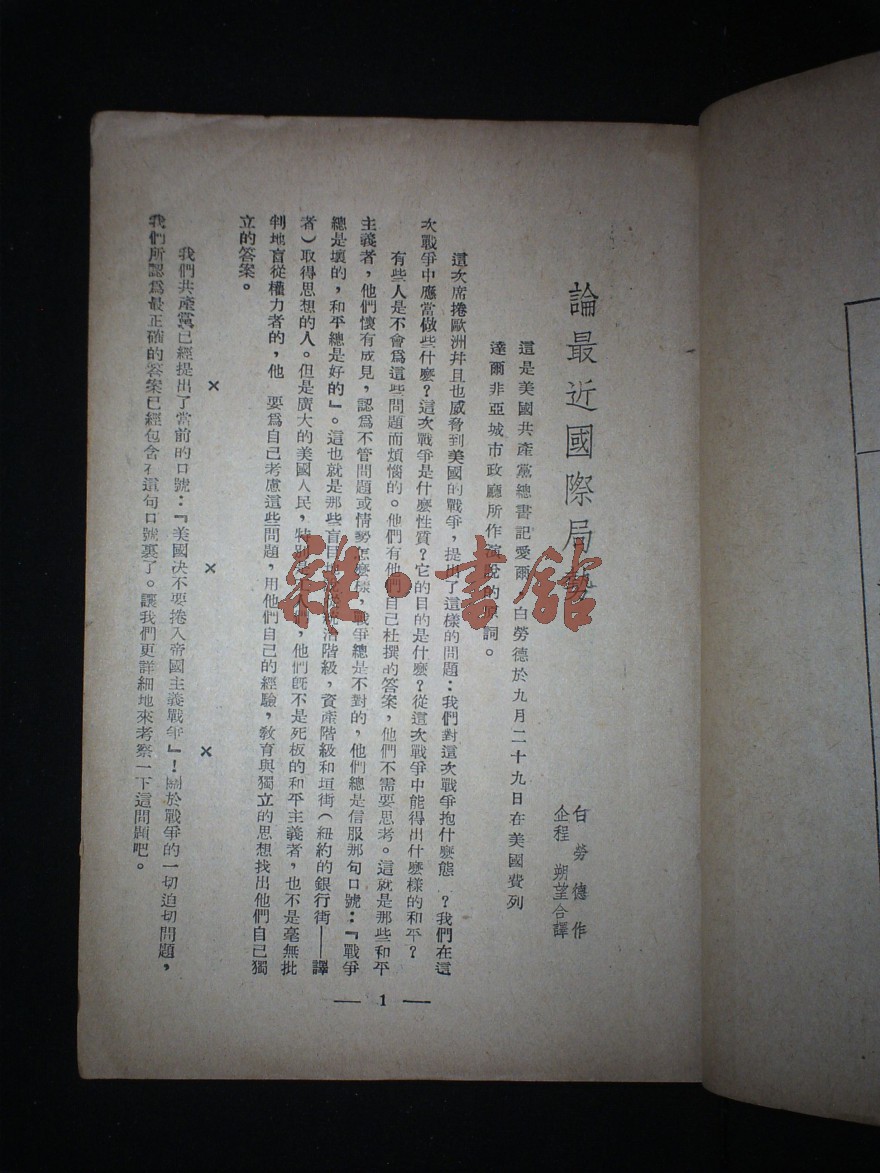 論最近國際局勢
白勞德作
企程 朔望合譯
這是美國共產黨總書記愛爾 白勞德於九月二十九日在美國費列
達爾非亞城市政廳所作演說的原詞。
這次席捲歐洲幷且也威脅到美國的戰爭，提出了這樣的問題：我們對這次戰爭抱什麼態 ？我們在這
次戰爭中應當做些什麼？這次戰爭是什麼性質？它的目的是什麼？從這次戰爭中能得出什麼樣的和平？
有些人是不會爲這些問題而煩惱的。他們有他們自己杜撰的答案，他們不需要思考。這就是那些和平
主義者，他們懷有成見，認爲不管問題或情勢怎麼樣，戰爭總是不對的，他們總是信服那句口號：『戰爭
總是壞的，和平總是好的』。這也就是那些盲目地 統治階級，資產階級和垣街（紐約的銀行街——譯
者）取得思想的人。但是廣大的美國人民，特別是工人們，他們旣不是死板的和平主義者，也不是毫無批
判地盲從權力者的，他 要爲自己考慮這些問題，用他們自己的經驗，敎育與獨立的思想找出他們自己獨
立的答案。
× × ×
我們共產黨已經提出了當前的口號：『美國決不要捲入帝國主義戰爭』！關於戰爭的一切迫切問題，
我們所認爲最正確的答案已經包含在這句口號裏了。讓我們更詳細地來考察一下這問題吧。
— 1 —
雜·書館